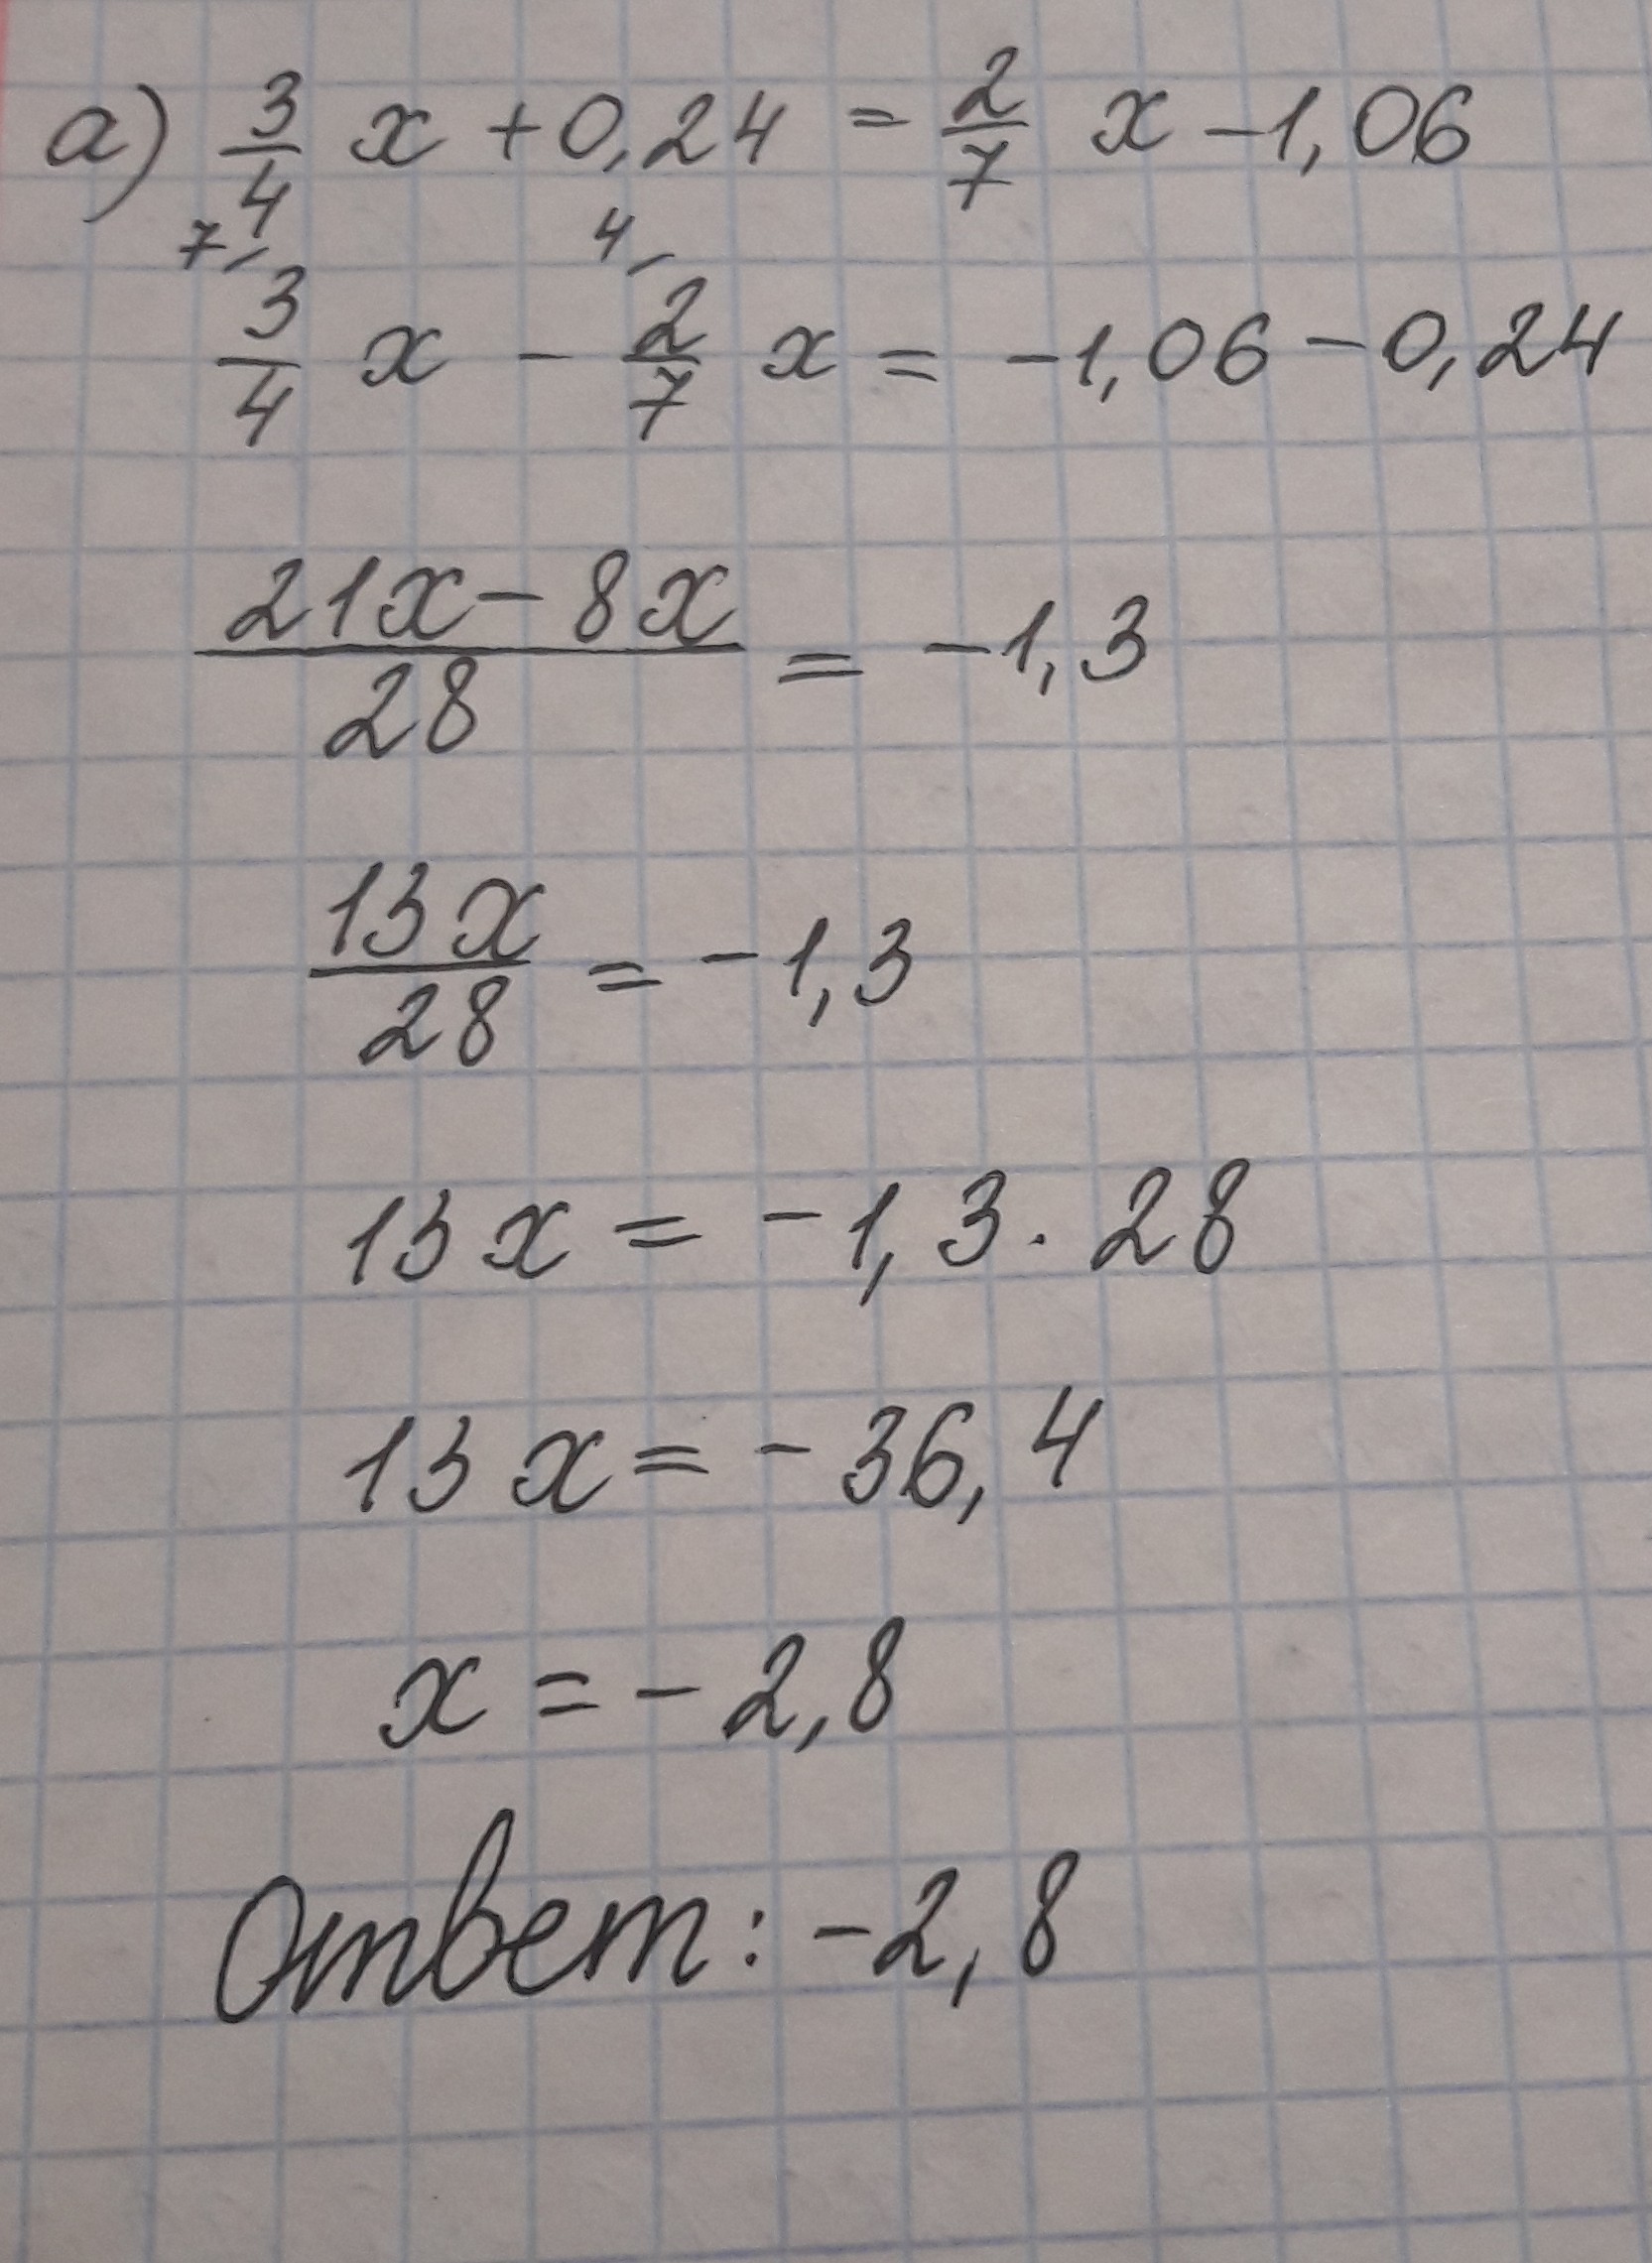 а) 3/4 x + 0,24 = 2/7 x - 1,06
7 4
3/4 x - 2/7 x = -1,06 - 0,24
21x - 8x / 28 = -1,3
13x / 28 = -1,3
13x = -1,3 · 28
13x = -36,4
x = -2,8
Ответ: -2,8